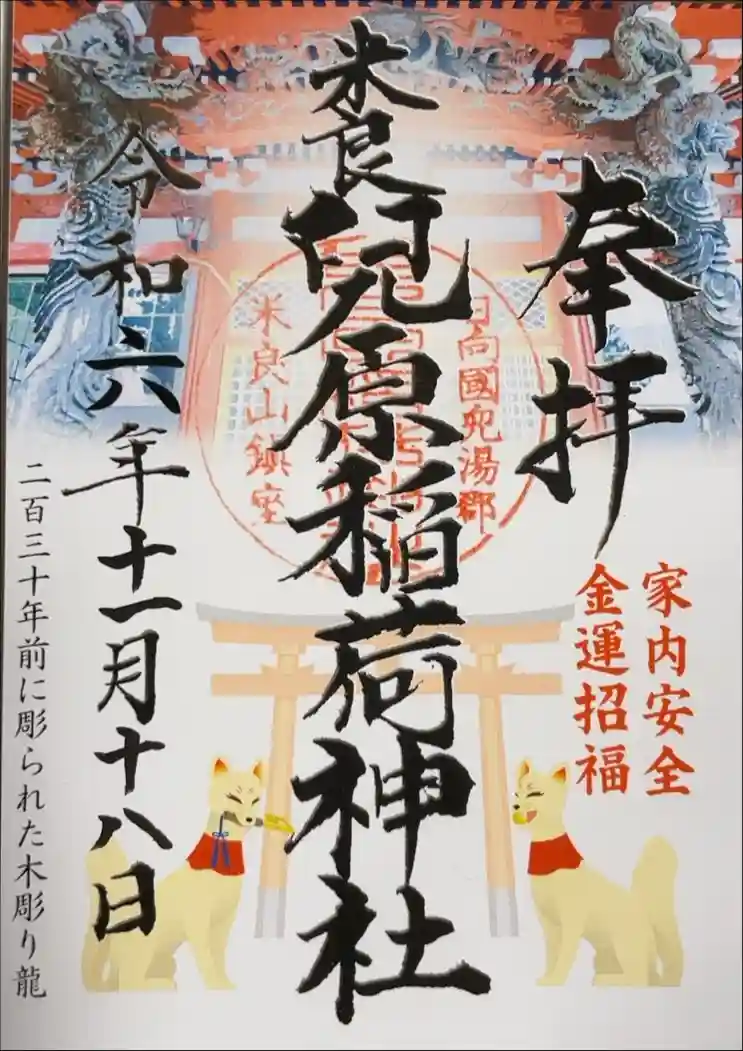 奉拝
家内安全
金運招福
日向國児湯郡
米良山鎮座
米良児原稲荷神社
令和六年十一月十八日
二百三十年前に彫られた木彫り龍